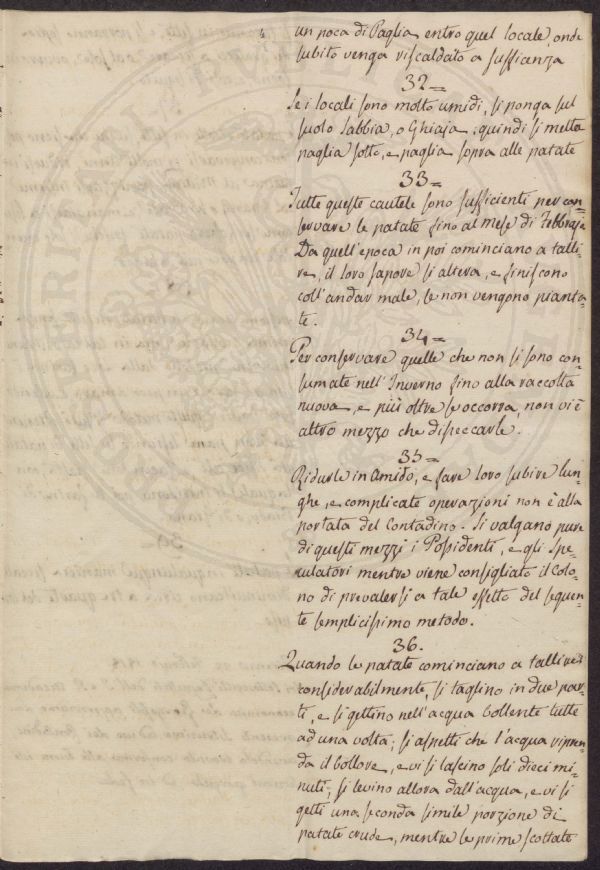 un poca di Paglia entro quel locale, onde
subito venga riscaldato a suffianza
32=
Se i locali sono molto umidi, si ponga sul
suolo Sabbia, o Ghiaja, quindi si metta
paglia sotto, e paglia sopra alle patate
33=
Tutte queste cautele sono sufficienti per con=
servare le patate fino al mese di Febbrajo
Da quell'epoca in poi cominciano a talli=
re, il loro sapore si altera, e finiscono
coll'andar male, se non vengono pianta=
te.
34=
Per conservare quelle che non si sono con=
sumate nell'Inverno fino alla raccolta
nuova, e più oltre se occorra, non vi è
altro mezzo che disseccarle.
35=
Ridurle in Amido, e fare loro subire lun=
ghe, e complicate operazioni non è alla
portata del Contadino. Si valgano pure
di questi mezzi i Possidenti, e gli Spe=
culatori mentre viene consigliato il Colo=
no di prevalersi a tale effetto del seguen=
te semplicissimo metodo.
36.
Quando le patate cominciano a tallire
considerabilmente, si taglino in due par=
ti, e si gettino nell'acqua bollente tutte
ad una volta; si aspetti che l'acqua ripren=
da il bollore, e vi si lascino soli dieci mi=
nuti; si levino allora dall'acqua, e vi si
getti una seconda simile porzione di
patate crude, mentre le prime scottate